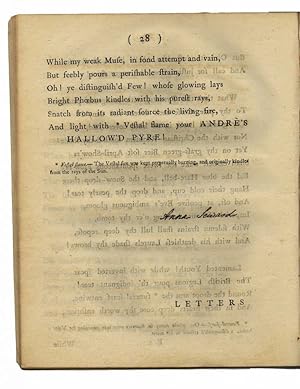 ( 28 )
While my weak Muse, in fond attempt and vain,
But feebly pours a perishable strain,
Oh! ye distinguish'd Few! whose glowing lays
Bright Phœbus kindles with his purest rays,
Snatch from its radiant source the living fire,
And light with * Vestal flame your ANDRÉ'S
HALLOW'D PYRE!
* Vestal flame.—The Vestal fire was kept perpetually burning, and originally kindled
from the rays of the Sun.
Anna Seward
LETTERS